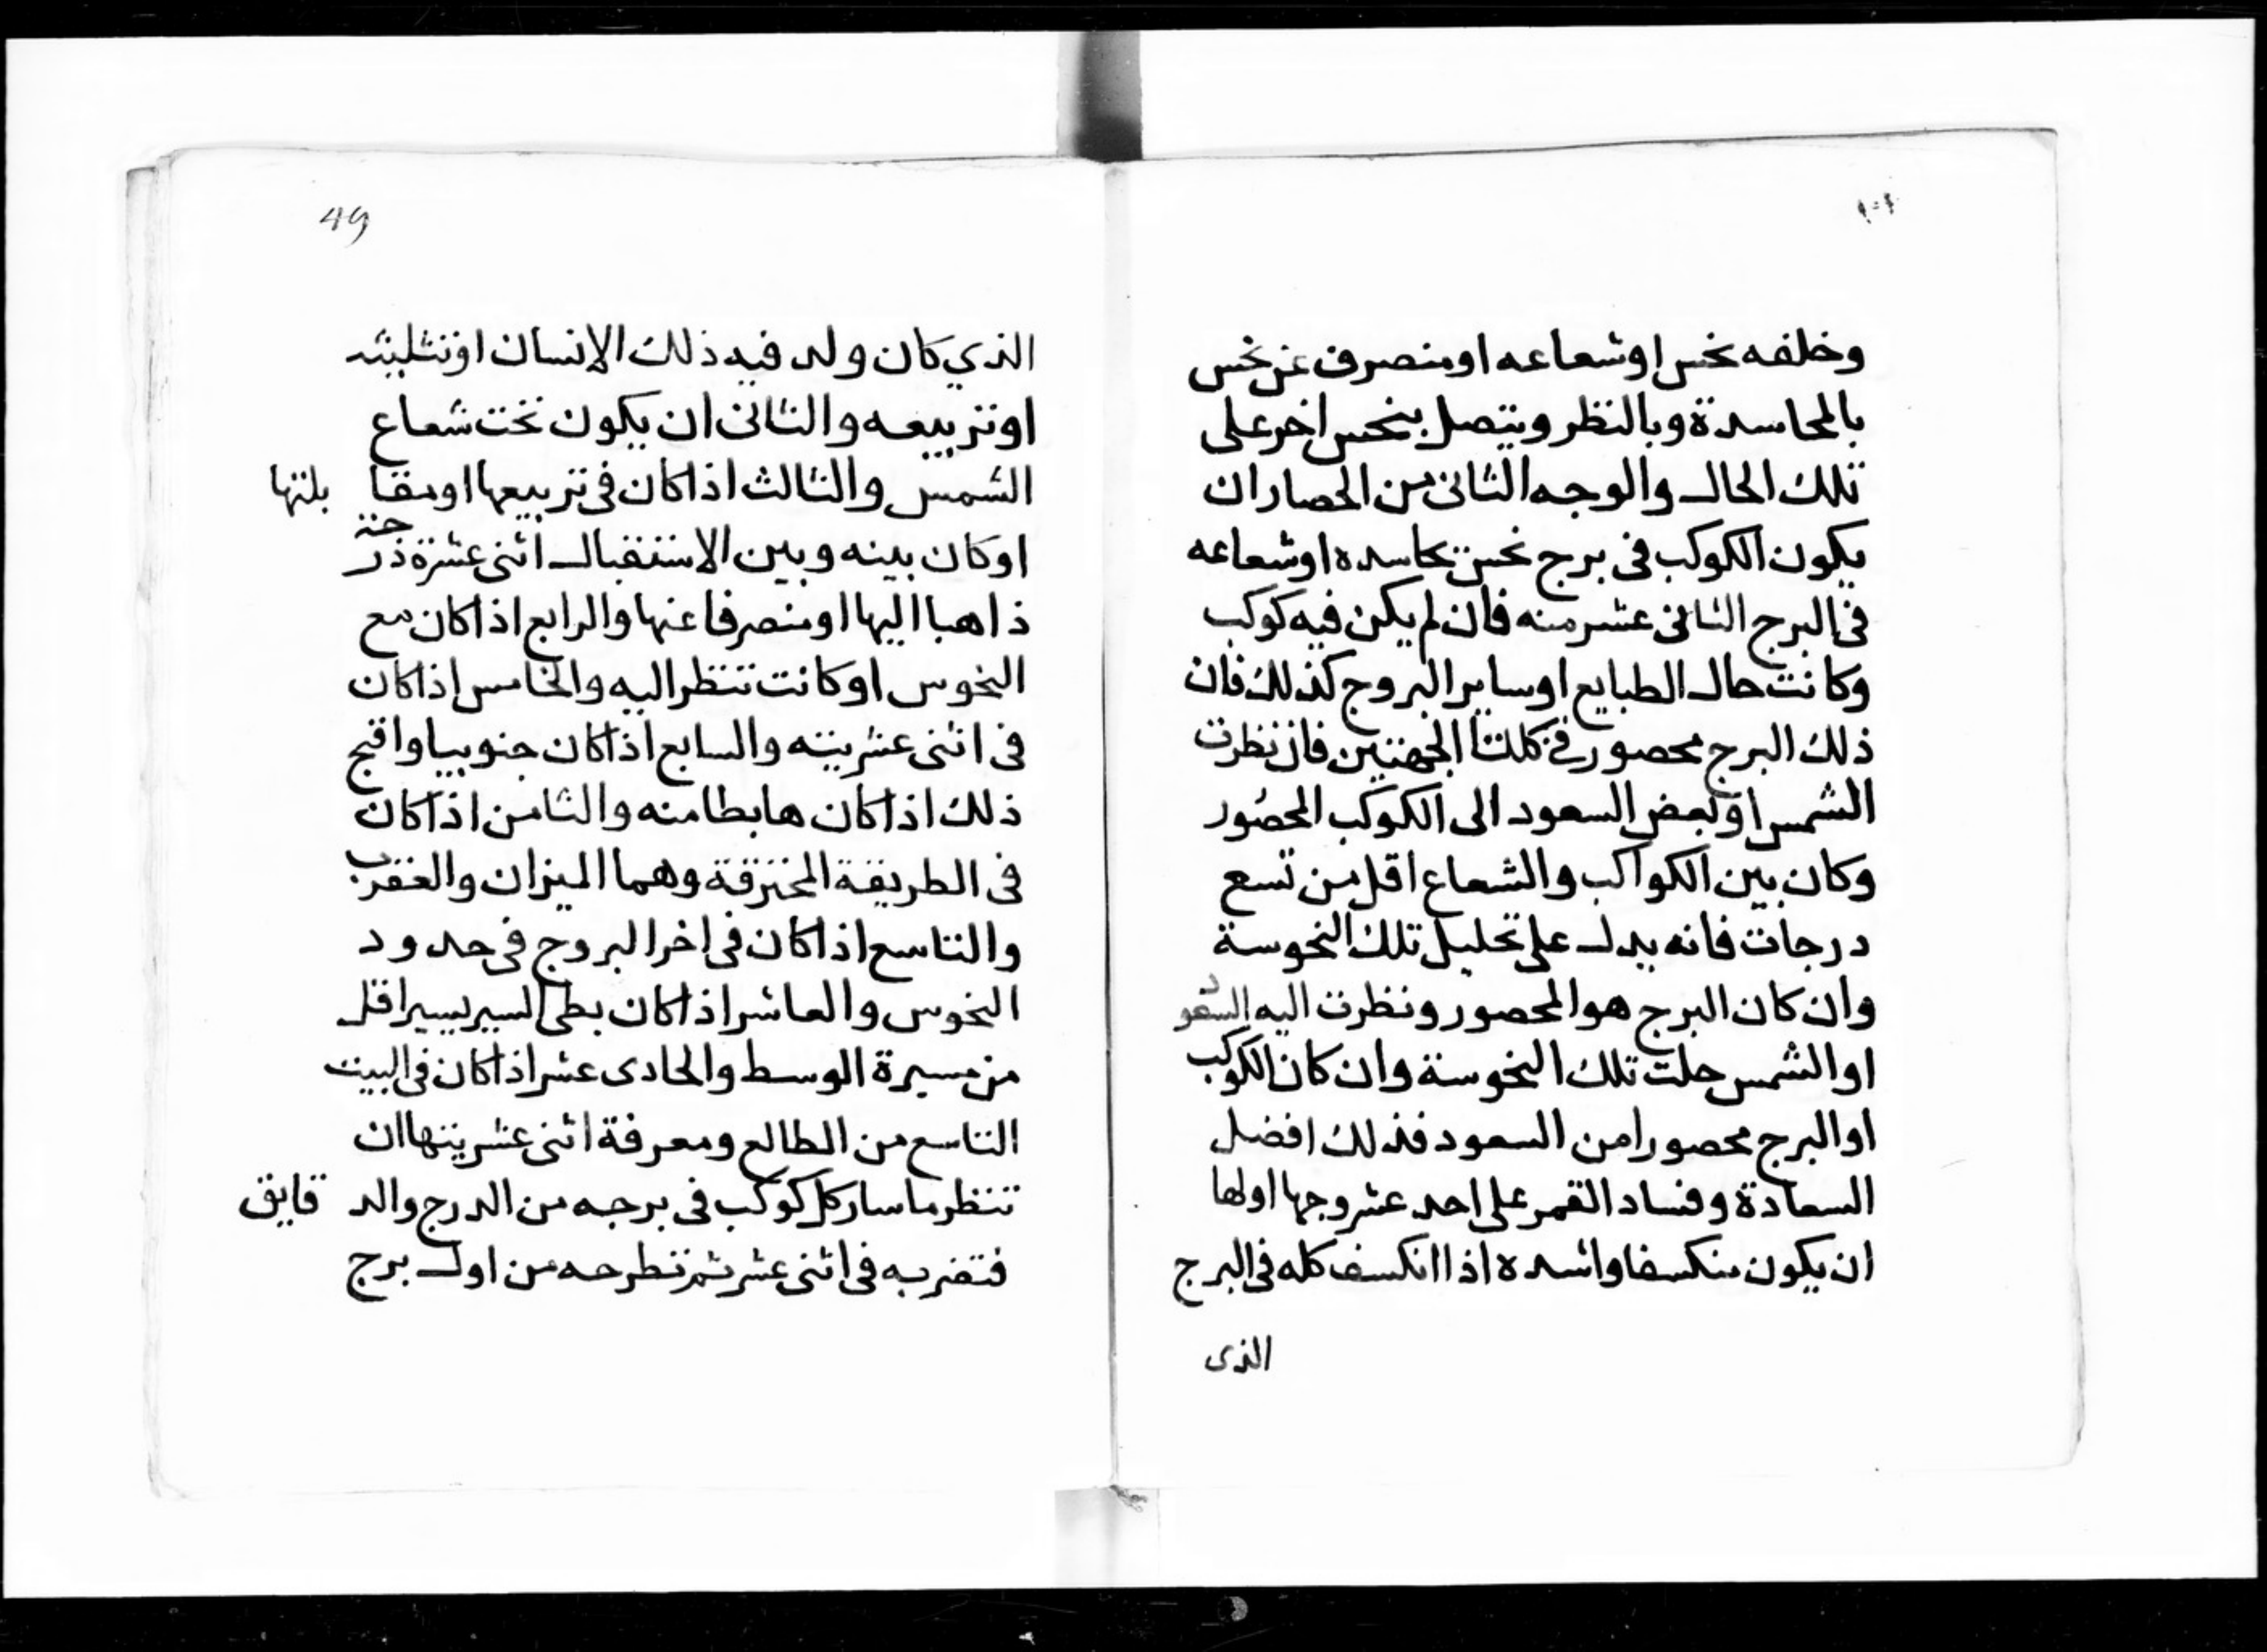 وخلفه نحس اوشعاعه اومنصرف عن نحس
بالمحاسدة وبالنظر ويتصل بنحس اخر على
تلك الحال والوجه الثانى من الحصار ان
يكون الكوكب فى برج نحس تحاسده اوشعاعه
فى البرج الثانى عشر منه فان لم يكن فيه كوكب
وكانت حال الطبايع اوساير البروج كذلك فان
ذلك البرج محصور فى كلتا الجهتين فان نظرت
الشمس او بعض السعود الى الكوكب المحصور
وكان بين الكواكب والشعاع اقل من تسع
درجات فانه يدل على تحليل تلك النحوسة
وان كان البرج هو المحصور ونظرت اليه السعود
او الشمس حلت تلك النحوسة وان كان الكوكب
او البرج محصورا من السعود فذلك افضل
السعادة وفساد القمر على احد عشر وجها اولها
ان يكون منكسفا واشده اذا انكسف كله فى البرج
الذى
49
الذي كان ولد فيه ذلك الانسان اوتثليثه
اوتربيعه والثانى ان يكون تحت شعاع
الشمس والثالث اذا كان فى تربيعها اومقا بلتها
اوكان بينه وبين الاستقبال اثنى عشرة درجة
ذاهبا اليها اومنصرفا عنها والرابع اذا كان مع
النحوس اوكانت تنظر اليه والخامس اذا كان
فى اثنى عشريته والسابع اذا كان جنوبيا واقبح
ذلك اذا كان هابطا منه والثامن اذا كان
فى الطريقة المحترقة وهما الميزان والعقرب
والتاسع اذا كان فى اخر البروج فى حدود
النحوس والعاشر اذا كان بطى السير يسير اقل
من مسيرة الوسط والحادى عشر اذا كان فى البيت
التاسع من الطالع ومعرفة اثنى عشريتها ان
تنظر ما سار كل كوكب فى برجه من الدرج والد قايق
فتضربه فى اثنى عشر ثم تطرحه من اول برج